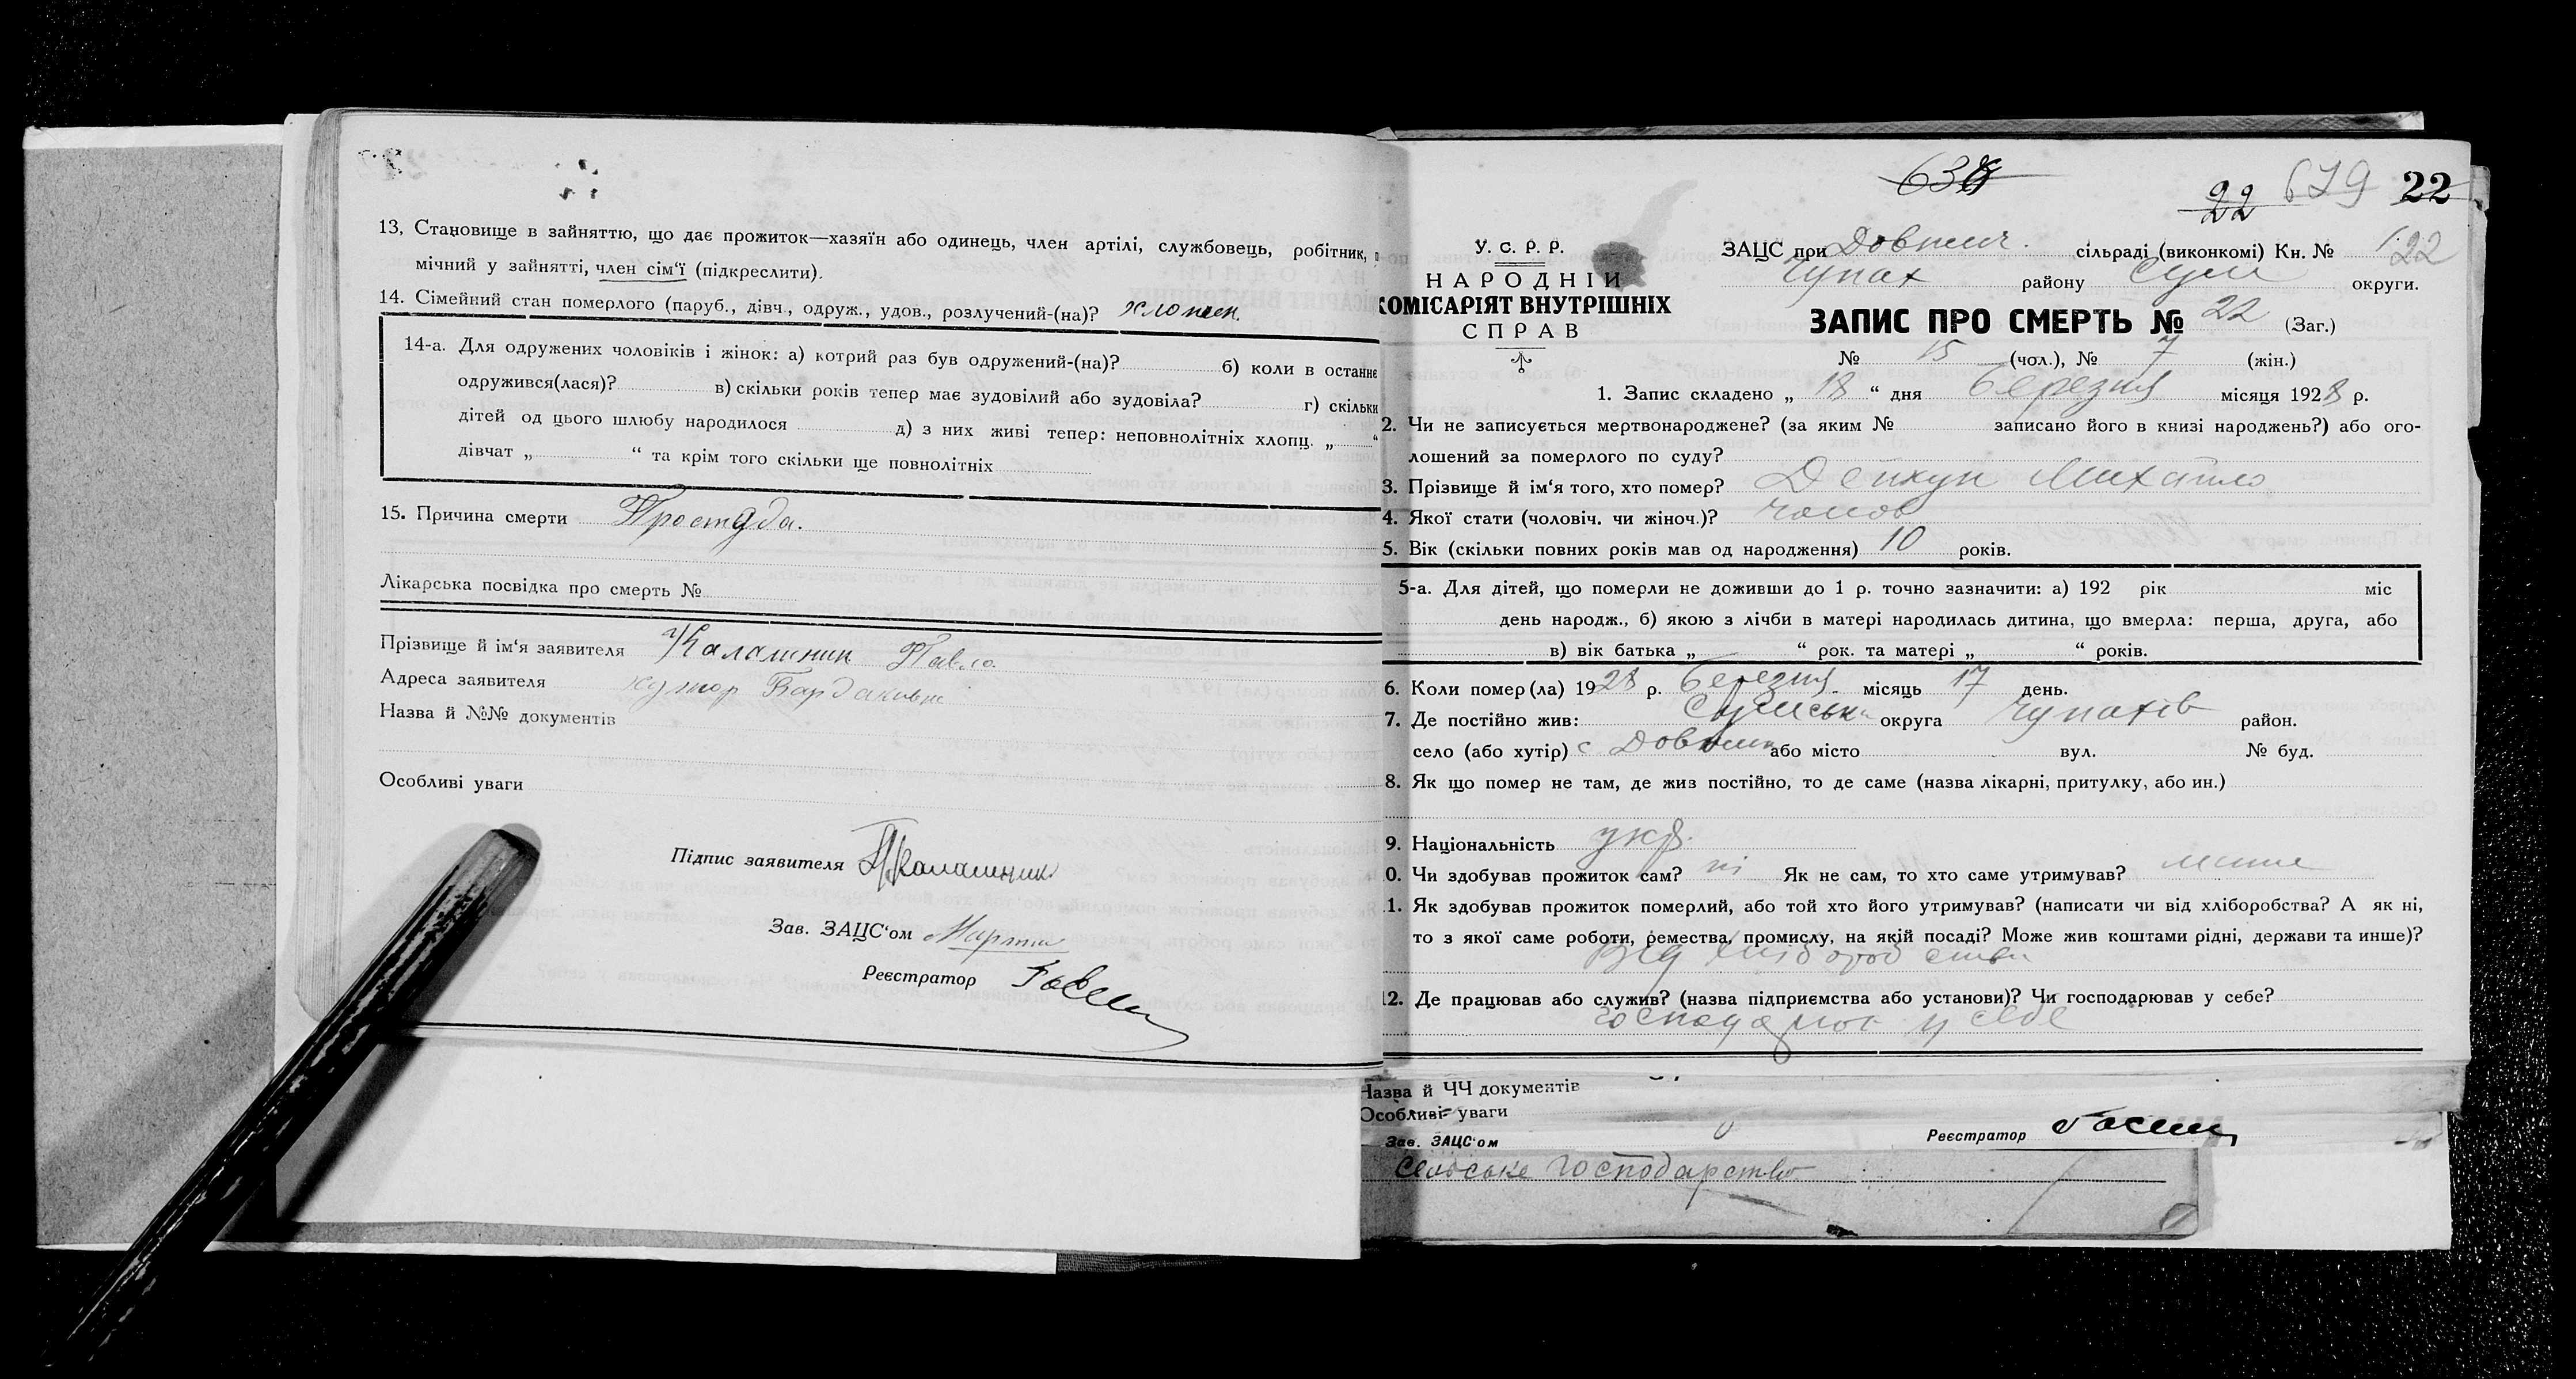 13, Становище в зайняттю, що дає прожиток—хазяїн або одинець, член артілі, службовець, робітник,
мічний у зайнятті, член сім'ї (підкреслити).
14. Сімейний стан померлого (паруб., дівч., одруж., удов., розлучений-(на)? хлопец.
14-а. Для одружених чоловіків і жінок: а) котрий раз був одружений-(на)? б) коли в останнє
одружився(лася)? в) скільки років тепер має зудовілий або зудовіла? г) скільки
дітей од цього шлюбу народилося д) з них живі тепер: неповнолітніх хлопц. „ “
дівчат „ “ та крім того скільки ще повнолітніх
15. Причина смерти Простуда.
Лікарська посвідка про смерть №
Прізвище й ім'я заявителя Каламиник Павло
Адреса заявителя хутор
Назва й №№ документів
Особливі уваги
Підпис заявителя
Зав. ЗАЦС'ом
Реєстратор
638
22 679 22
У. С. Р. Р.
НАРОДНІЙ
КОМІСАРІЯТ ВНУТРІШНІХ
СПРАВ
ЗАЦС при Довжич. сільраді (виконкомі) Кн. № 1. 22
Чупах району Сум округи.
ЗАПИС ПРО СМЕРТЬ № 22 (Заг.)
№ 15 (чол.), № 7 (жін.)
1. Запис складено „ 18 “ дня березня місяця 1928 р.
2. Чи не записується мертвонароджене? (за яким № записано його в книзі народжень?) або ого-
лошений за померлого по суду?
3. Прізвище й ім'я того, хто помер? Дейкун Михайло
4. Якої стати (чоловіч. чи жіноч.)? чолов
5. Вік (скільки повних років мав од народження) 10 років.
5-а. Для дітей, що померли не доживши до 1 р. точно зазначити: а) 192 рік міс
день народж., б) якою з лічби в матері народилась дитина, що вмерла: перша, друга, або
в) вік батька „ “ рок. та матері „ “ років.
6. Коли помер (ла) 1928 р. березня місяць 17 день.
7. Де постійно жив: Сумськ округа Чупахів район.
село (або хутір) с Довжик або місто вул. № буд.
8. Як що помер не там, де жив постійно, то де саме (назва лікарні, притулку, або ин.)
9. Національність укр.
0. Чи здобував прожиток сам? ні Як не сам, то хто саме утримував?
1. Як здобував прожиток померлий, або той хто його утримував? (написати чи від хліборобства? А як ні,
то з якої саме роботи, ремества, промислу, на якій посаді? Може жив коштами рідні, держави та инше)?
Від хліборобства
12. Де працював або служив? (назва підприємства або установи)? Чи господарював у себе?
господарює у себе
Назва й ЧЧ документів
Особливі уваги
Зав. ЗАЦС'ом Реєстратор
Сельське господарство